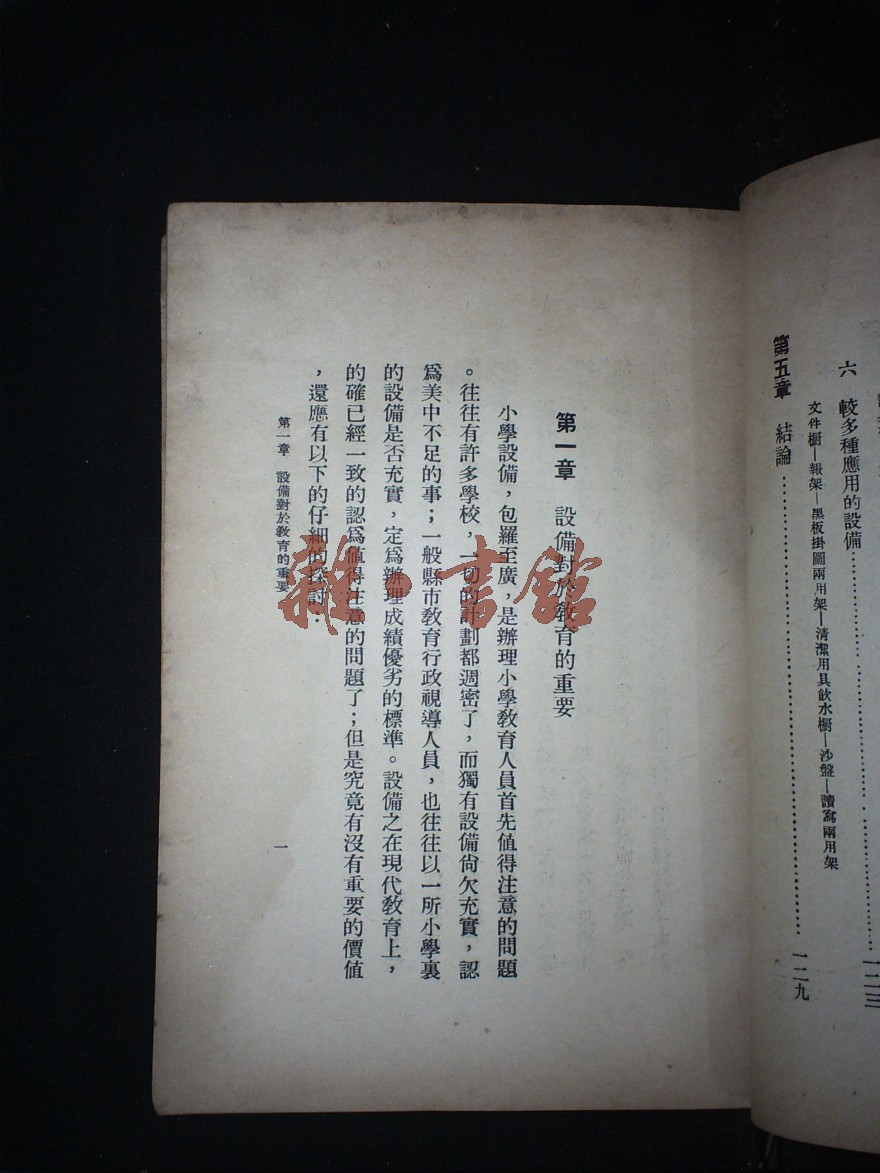 六　較多種應用的設備……一二三
文件櫥—報架—黑板掛圖兩用架—清潔用具飲水櫥—沙盤—讀寫兩用架
第五章　結論……一二九
第一章　設備對於教育的重要
小學設備，包羅至廣，是辦理小學教育人員首先值得注意的問題
。往往有許多學校，一切的計劃都週密了，而獨有設備尚欠充實，認
爲美中不足的事；一般縣市教育行政視導人員，也往往以一所小學裏
的設備是否充實，定爲辦理成績優劣的標準。設備之在現代教育上，
的確已經一致的認爲值得注意的問題了；但是究竟有沒有重要的價值
，還應有以下的仔細的探討：
第一章　設備對於教育的重要
一
雜·書館